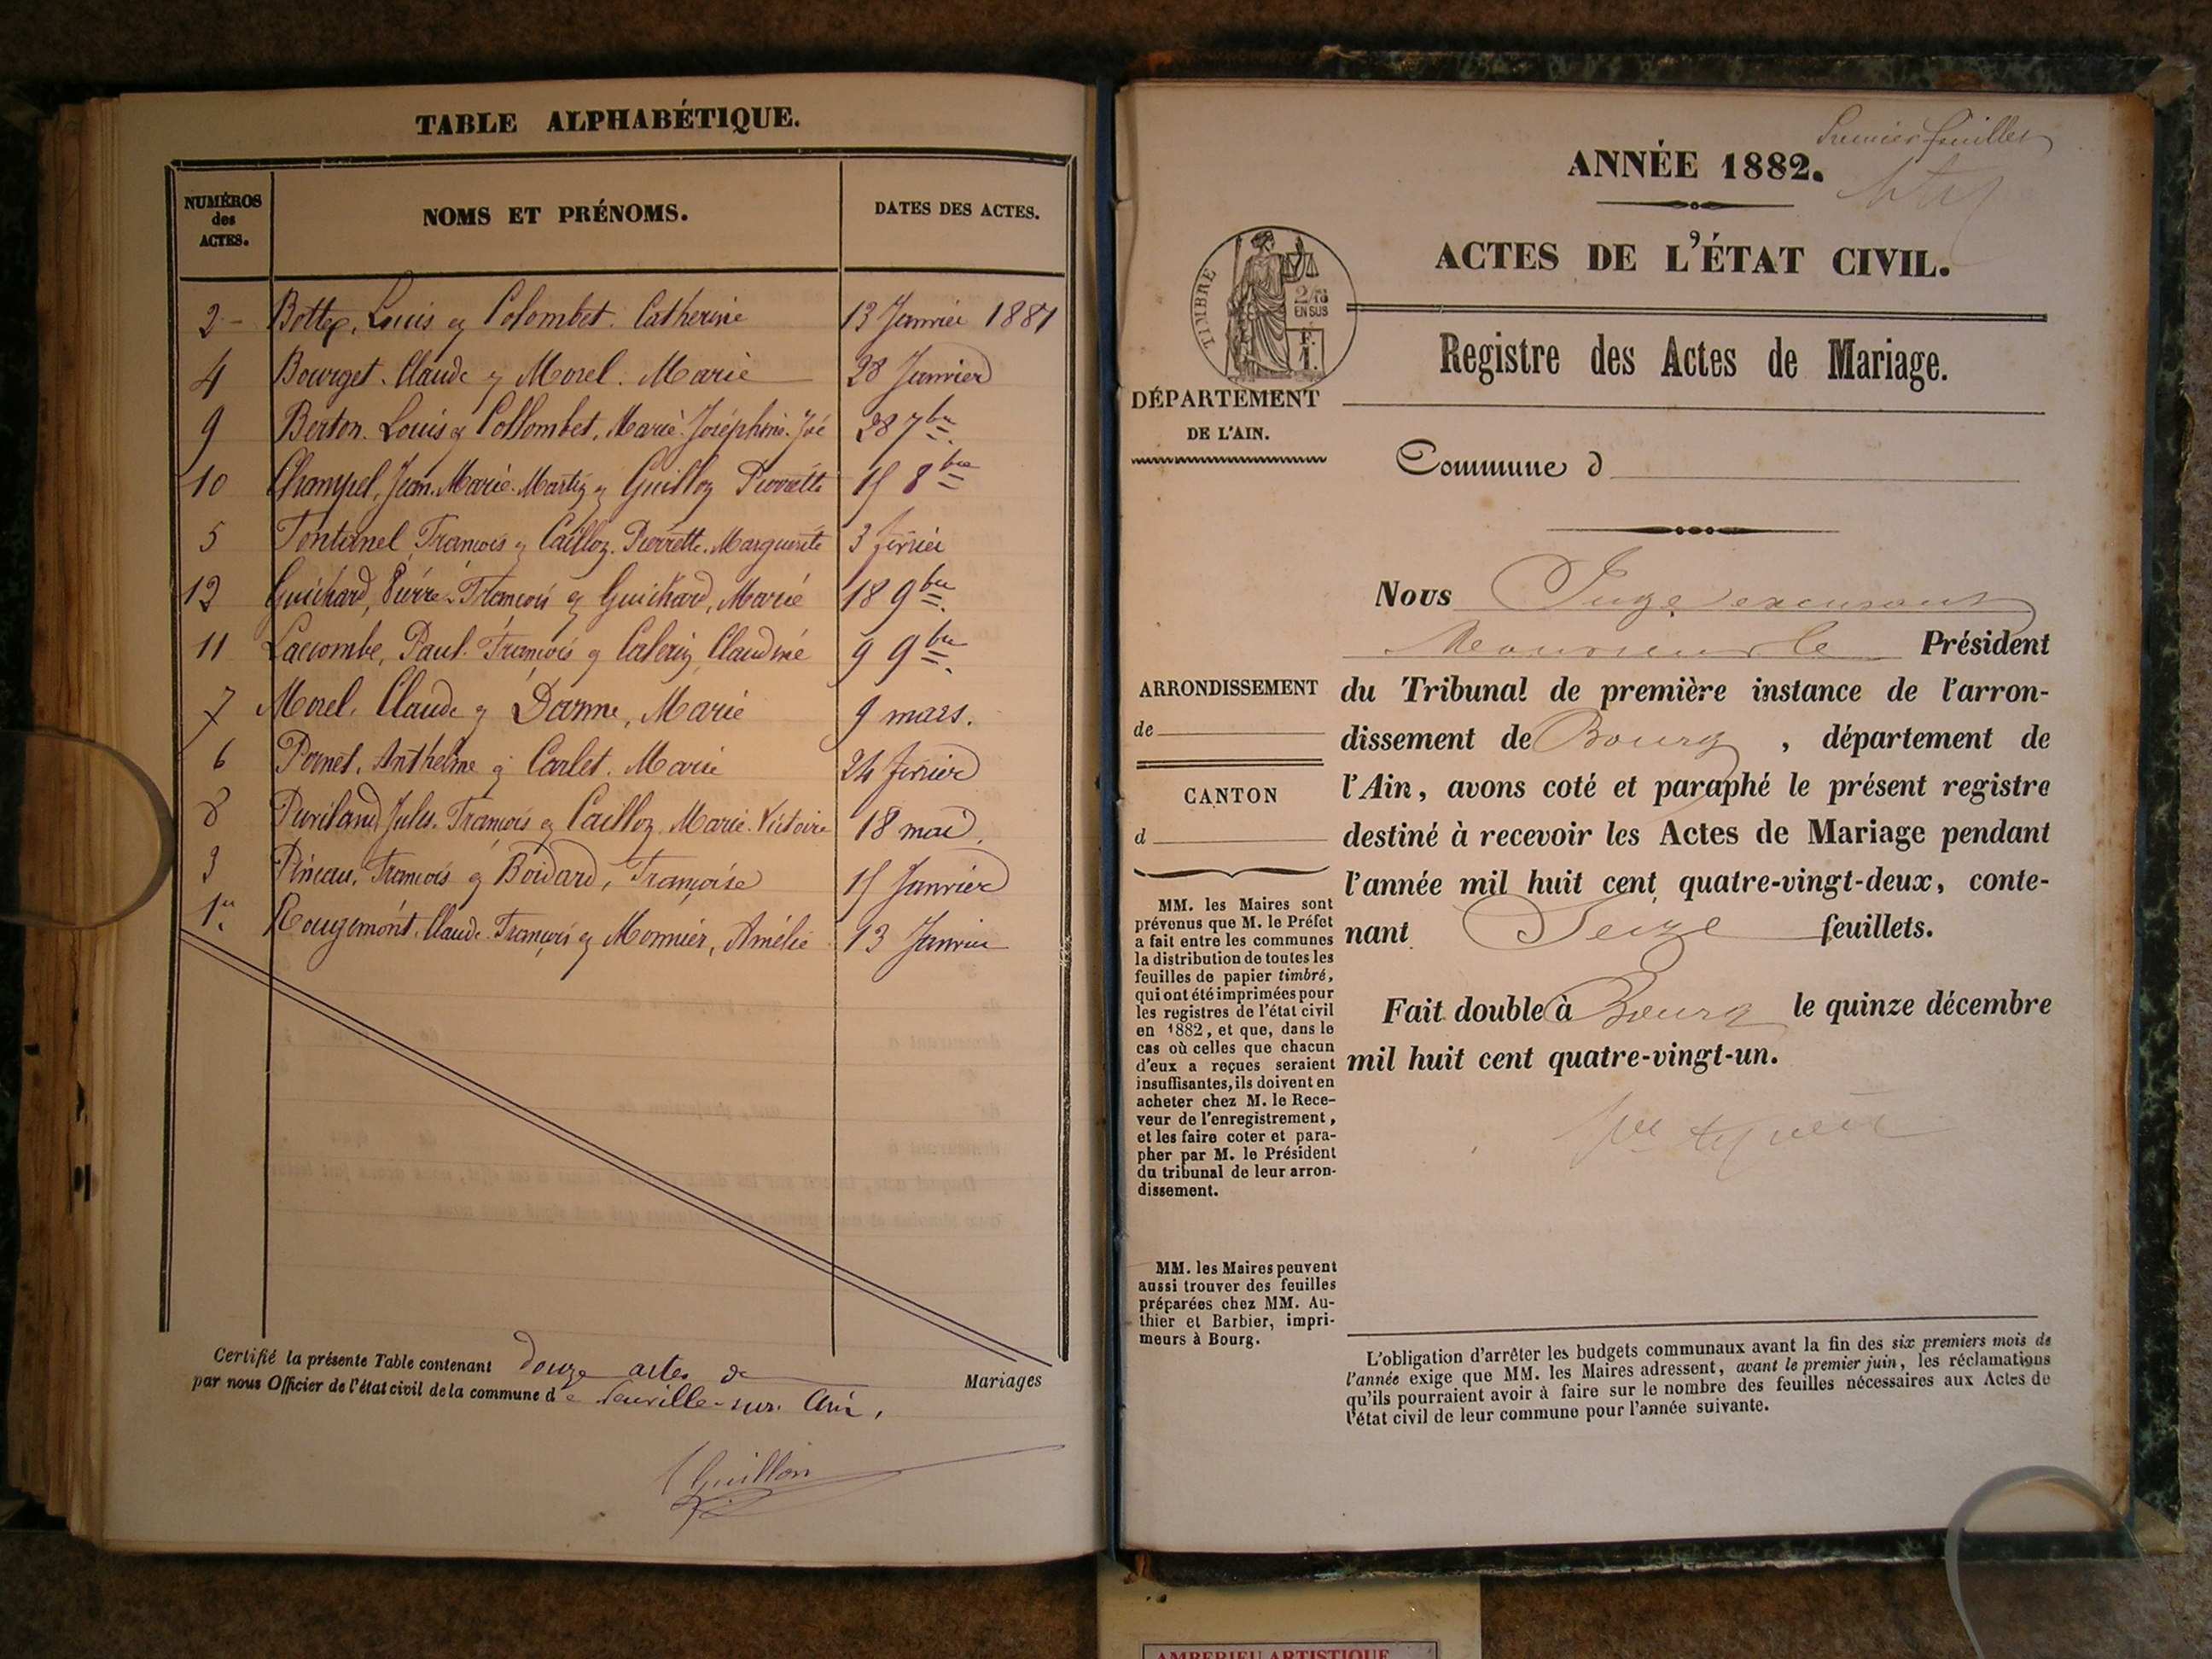 TABLE ALPHABÉTIQUE.
NUMÉROS des ACTES.
NOMS ET PRÉNOMS.
DATES DES ACTES.
2 - Bottex, Louis et Colombet. Catherine 13 Janvier 1881
4 Bourget. Claude et Morel. Marie 28 Janvier
9 Berton. Louis et Collombet, Marie-Joséphine 28 7bre
10 Champel, Jean-Marie-Martin et Guilloz Pierrette 15 8bre
5 Fontanel, François et Cailloz. Pierrette-Marguerite 3 février
12 Guichard, Pierre-François et Guichard, Marie 18 9bre.
11 Lacombe, Paul-François et Claudine 9 9bre.
7 Morel, Claude et Danne, Marie 9 mars.
6 Pornet. Anthelme et Carlet. Marie 24 février
8 Jules-François et Cailloz Marie-Victoire 18 mai.
3 Pineau, François et Boidard, Françoise 15 Janvier
1er Rougemont. Claude-François et Monnier, Amélie 13 Janvier
Certifié la présente Table contenant douze actes de Mariages
par nous Officier de l'état civil de la commune de Neuville-sur-Ain,
Guillon
Premier feuillet
ANNÉE 1882.
ACTES DE L'ÉTAT CIVIL.
TIMBRE
2/10 EN SUS
F. 1.
Registre des Actes de Mariage.
DÉPARTEMENT
DE L'AIN.
Commune d
Nous Juge excusant
Monsieur le Président
du Tribunal de première instance de l'arron-
dissement de Bourg, département de
l'Ain, avons coté et paraphé le présent registre
destiné à recevoir les Actes de Mariage pendant
l'année mil huit cent quatre-vingt-deux, conte-
nant Seize feuillets.
Fait double à Bourg le quinze décembre
mil huit cent quatre-vingt-un.
ARRONDISSEMENT
de
CANTON
d
MM. les Maires sont
prévenus que M. le Préfet
a fait entre les communes
la distribution de toutes les
feuilles de papier timbré,
qui ont été imprimées pour
les registres de l'état civil
en 1882, et que, dans le
cas où celles que chacun
d'eux a reçues seraient
insuffisantes, ils doivent en
acheter chez M. le Rece-
veur de l'enregistrement,
et les faire coter et para-
pher par M. le Président
du tribunal de leur arron-
dissement.
MM. les Maires peuvent
aussi trouver des feuilles
préparées chez MM. Au-
thier et Barbier, impri-
meurs à Bourg.
L'obligation d'arrêter les budgets communaux avant la fin des six premiers mois de
l'année exige que MM. les Maires adressent, avant le premier juin, les réclamations
qu'ils pourraient avoir à faire sur le nombre des feuilles nécessaires aux Actes de
l'état civil de leur commune pour l'année suivante.
AMBERIEU ARTISTIQUE